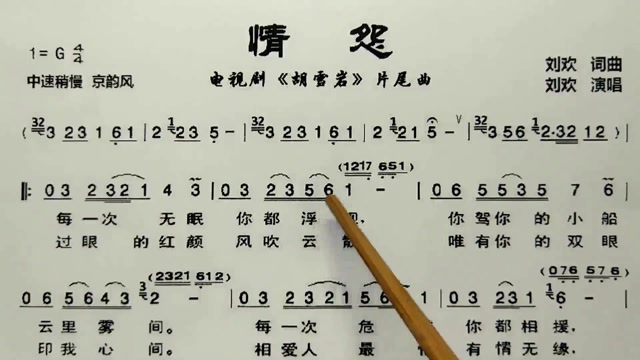 情 怨
1=G 4/4
中速稍慢 京韵风
电视剧《胡雪岩》片尾曲
刘欢 词曲
刘欢 演唱
(32 3 2 3 1 6 1 | 2 1 2 3 5 - | 32 3 2 3 1 6 1 | 2 1 2 1 5 - ∨ | 32 3 5 6 1 2·3 2 1 2
(1217 651)
‖: 0 3 2 3 2 1 4 3 | 0 3 2 3 5 6 1 - | 0 6 5 5 3 5 7 6
每一次 无眠 你都浮 你驾你 的小船
过眼 的红颜 风吹云 唯有你 的双眼
(2321 612) (076 576)
0 6 5 6 4 3 3 2 - | 0 3 2 3 2 1
云里雾 间。 每一次 危 你都相援,
印我心 间。 相爱人 最 有情无缘,